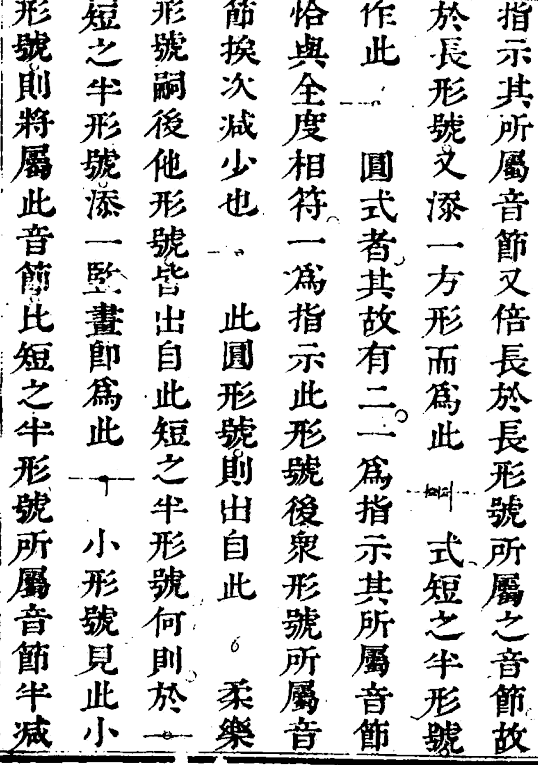 指示其所屬音節又倍長於長形號所屬之音節故
於長形號又添一方形而爲此式短之半形號
作此圓式者其故有二一爲指示其所屬音節
恰與全度相符一爲指示此形號後衆形號所屬音
節挨次减少也此圓形號則出自此柔樂
形號嗣後他形號皆出自此短之半形號何則於
短之半形號添一監畫卽爲此小形號見此小
形號則將屬此音節比短之半形號所屬音節半减